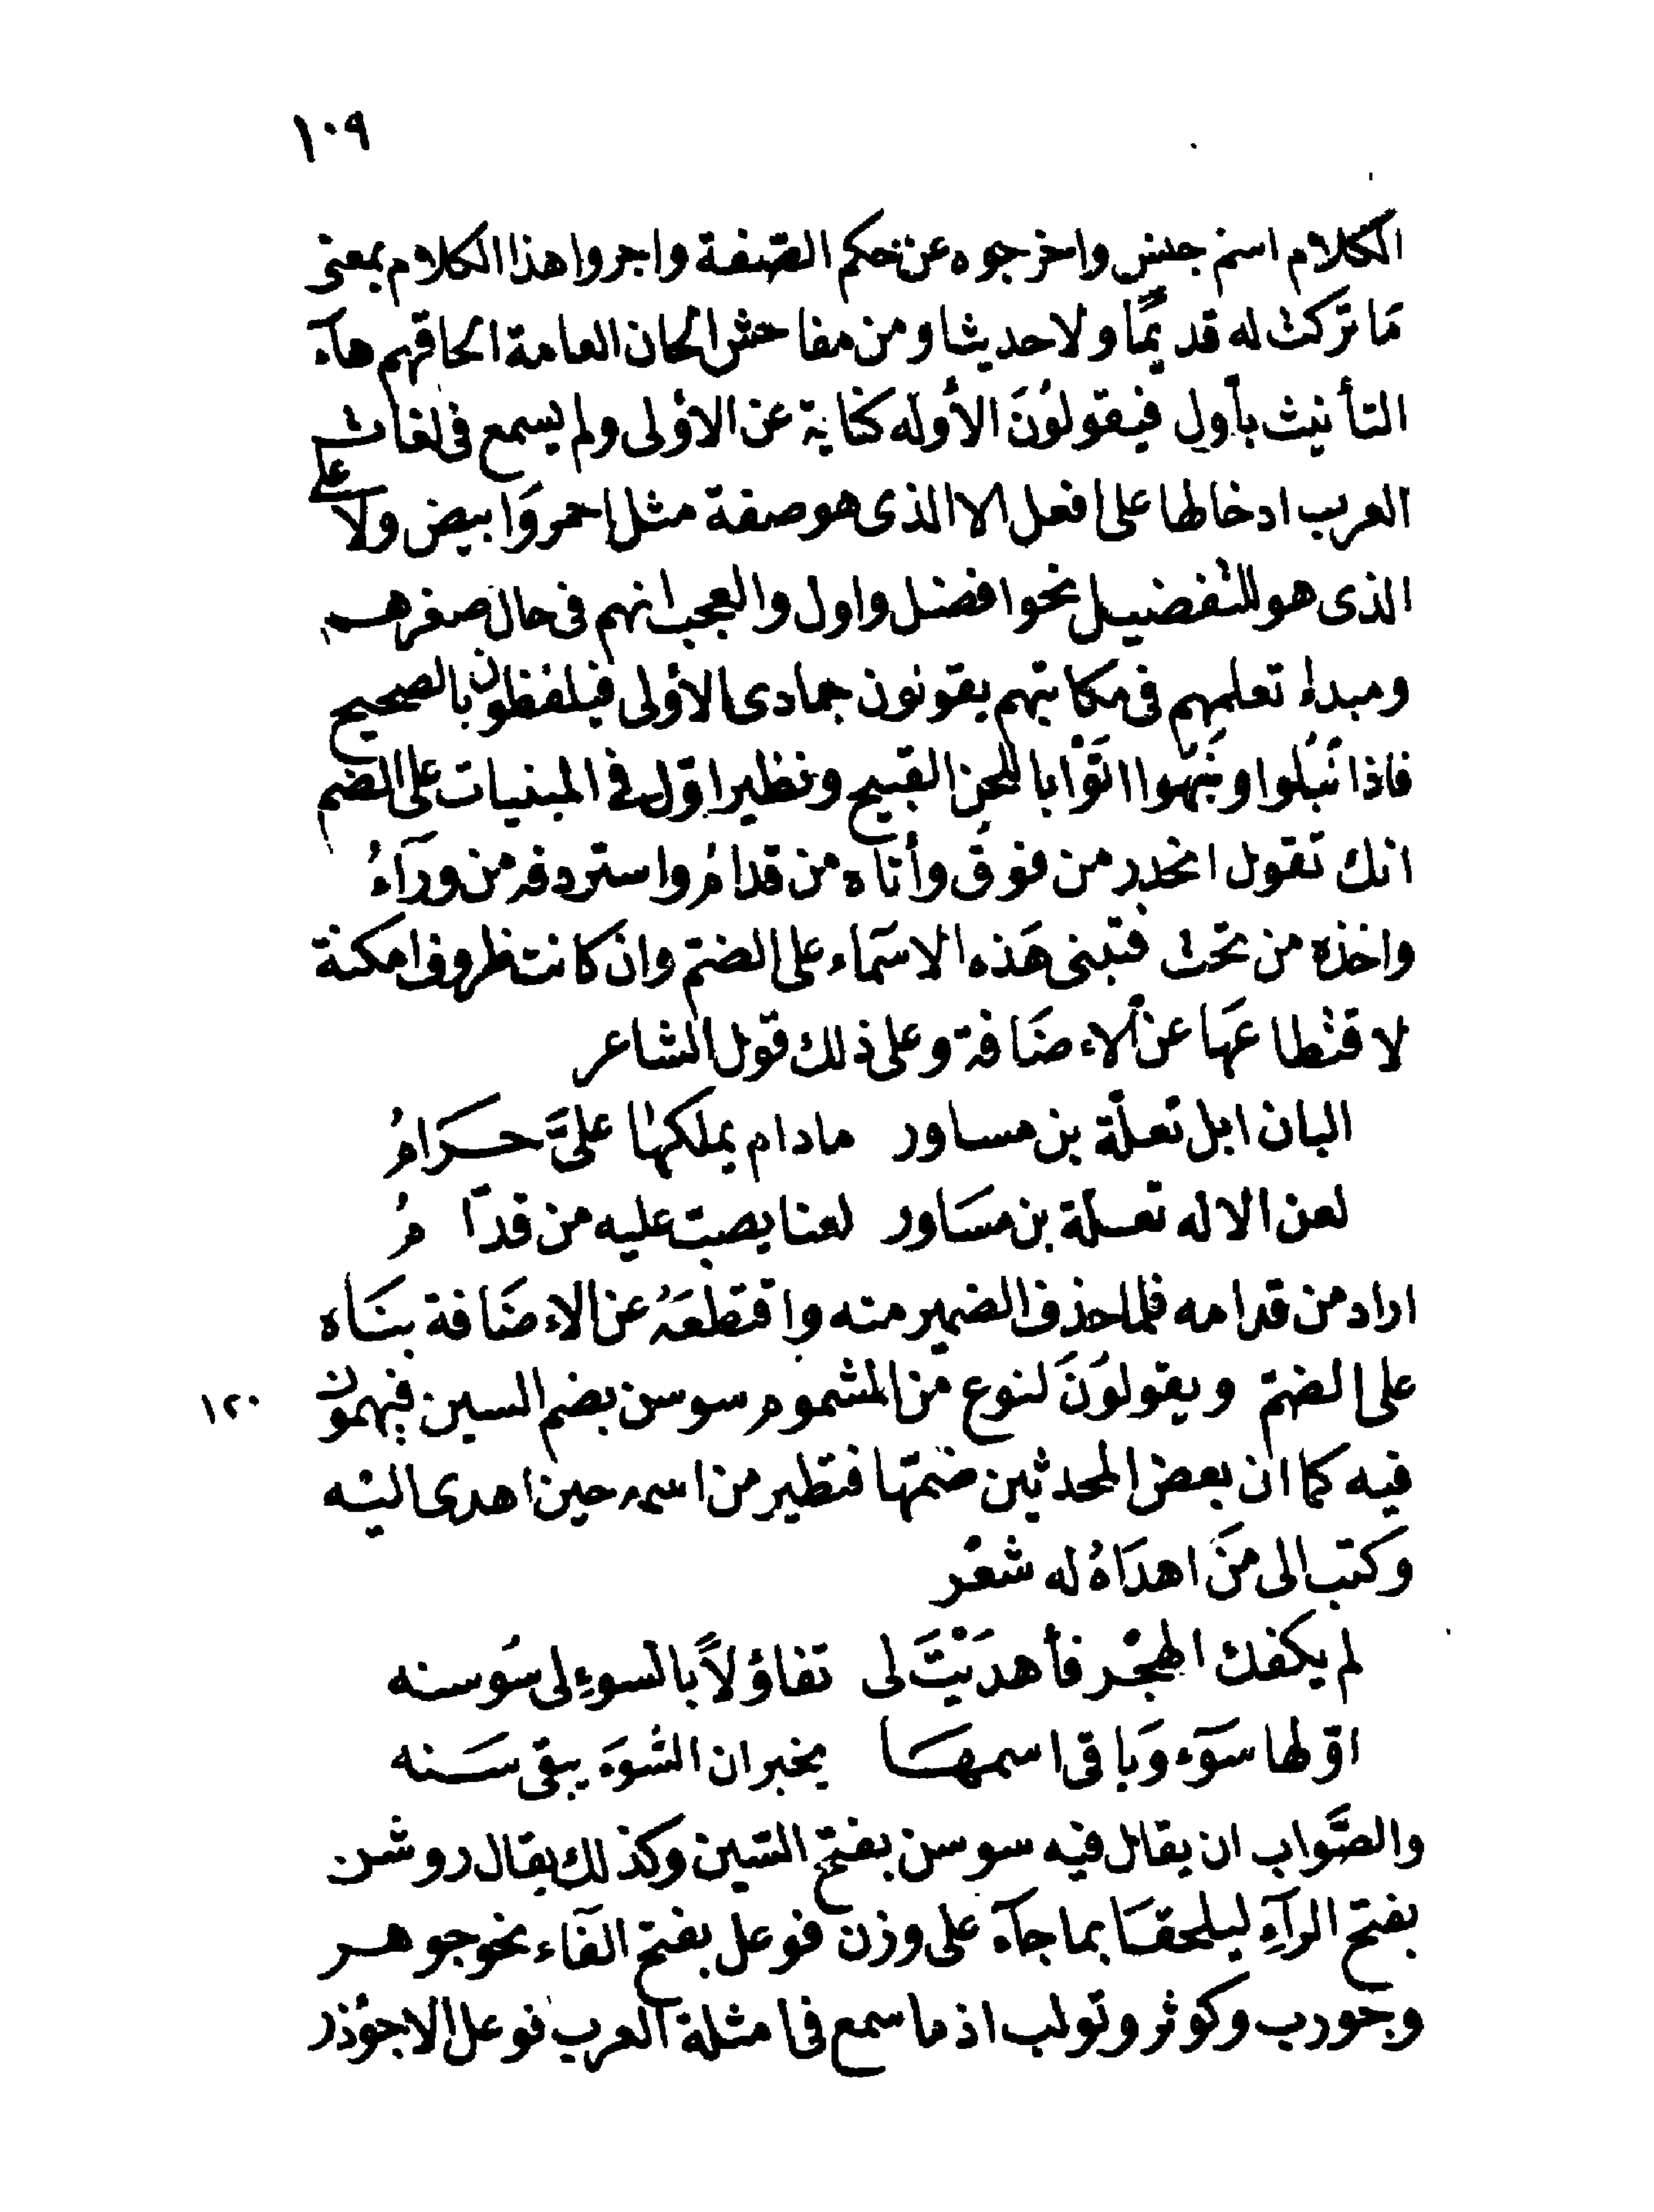 ١٠٩
الكلام اسم جنس واخرجوه عن حكم الصفة واجروا هذا الكلام بمعنى
مَا تركت له قديمًا ولا حديثا ومن مفاحش الحان العامة الحاقهم هآء
التأنيث بأول فيقولُونَ الأوله كناية عن الاوْلى ولم يسمع فى لغات
العرب ادخالها على افعل الا الذى هو صفة مثل احمر وَابيض ولا على
الذى هو للتفضيل نحو افضل واول والعجب انهم فى حال صغرهم
ومبدإ تعلمهم فى مكاتبهم يقولون جمادى الاوْلى فيلفظون بالصحيح
فاذا نَبُلوا ونَبَهوا اتَوْا باللحن القبيح ونظير اوّل فى المبنيات على الضم
انك تقول انحدر من فوقُ وأتاه من قدامُ واستردفه من ورَآءُ
واخذه من تحت فتبنى هَذه الاسمَاء على الضمّ وان كانت ظروف امكنة
لاقتطاعهَا عن الاءضَافة وعلى ذلك قول الشاعر
البان ابل تعلّة بن مساور مادام يملكها علىَّ حَرَامُ
لعن الاله تعلة بن مسَاور لعنا يصبّ عليه من قدّامُ
اراد من قدامه فلما حذف الضمير منه واقتطعَهُ عن الاءضَافة بنَاه
على الضمّ ويقولوُنَ لنوع من المشموم سوسن بضم السين فيهمون
١٢٠
فيه كما ان بعض المحدثين ضمّها فتطير من اسمه حين اهدى اليْه
وَكتب الى مَنَ اهدَاهُ له شعْر
لم يكفك الهجْر فأهديْتَ لى تفاؤلاً بالسوءِ لى سُوسنه
اوّلها سَوَء وَباقى اسمهَا يخبر ان السُّوَء يبقى سَنه
والصَّواب ان يقال فيه سوسن بفتح السّين وكذلك يقال روشن
بفتح الرآءِ ليلحقَا بما جآء على وزن فوعل بفتح الفَاء نحو جوهر
وجَورب وكوثر وتولب اذ ما سمع فى امثلة العرب فوعل الا جوُذر